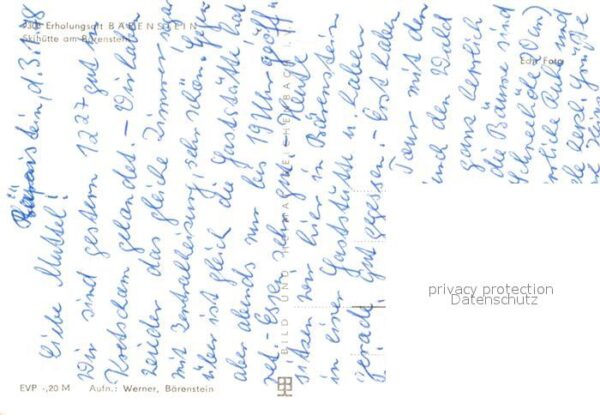 Erholungsort BÄRENSTEIN
Skihütte am Bärenstein
Bärenstein, d. 3.1.78
Liebe Muttel!
Wir sind gestern 12.27 gut in
Kretscham gelandet. – Wir haben
wieder das gleiche Zimmer
mit Zentralheizung, sehr schön.
über ist gleich die Gaststätte hat
aber abends nur bis 19 Uhr geöff-
net. – Essen sehr gut. Heute
sitzen wir hier in Bärenstein
in einer Gaststätte u. haben
gerade gut gegessen. – Erst haben
Tour mit den
durch den Wald
ganz herrlich
die Bäume sind
Schneehöhe 70 cm)
Ruh und
herzl. Grüße
BILD UND HEIMAT REICHENBACH I. V.
Foto
EVP -,20 M Aufn.: Werner, Bärenstein
privacy protection
Datenschutz